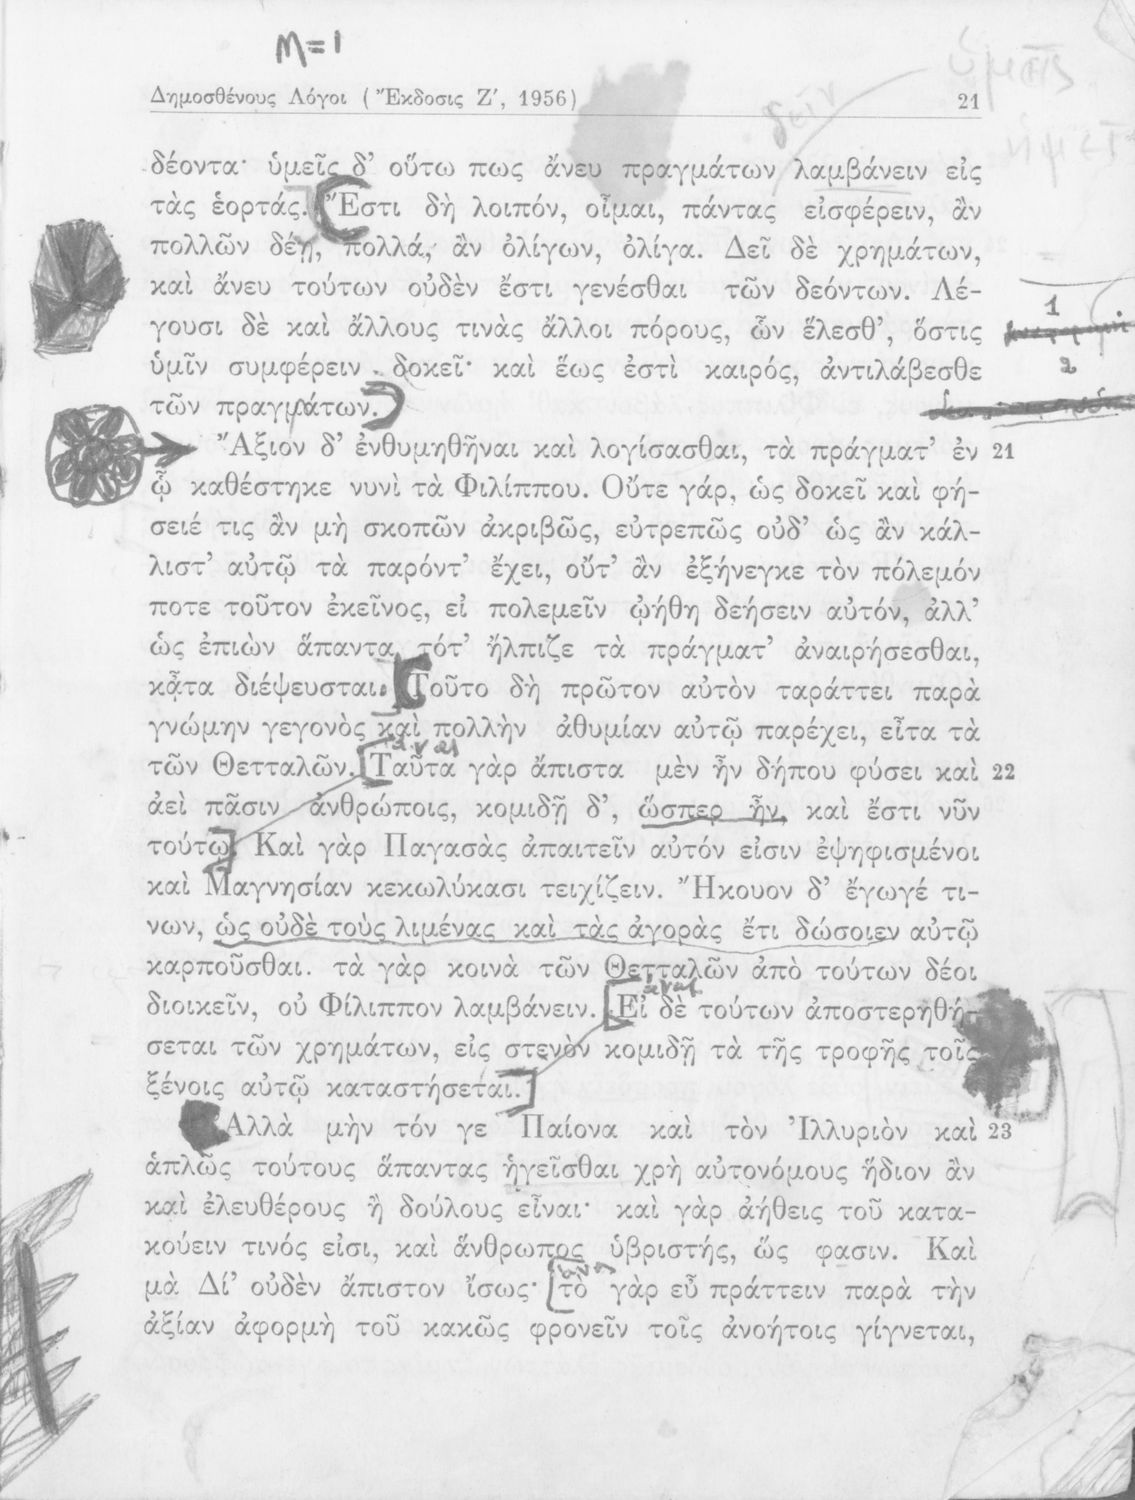 M=1
Δημοσθένους Λόγοι (Ἔκδοσις Ζ′, 1956) 21
δεῖν
ὑμεῖς
δέοντα· ὑμεῖς δ’ οὕτω πως ἄνευ πραγμάτων λαμβάνειν εἰς
τὰς ἑορτάς. Ἔστι δὴ λοιπόν, οἶμαι, πάντας εἰσφέρειν, ἂν
πολλῶν δέῃ, πολλά, ἂν ὀλίγων, ὀλίγα. Δεῖ δὲ χρημάτων,
καὶ ἄνευ τούτων οὐδὲν ἔστι γενέσθαι τῶν δεόντων. Λέ-
1
γουσι δὲ καὶ ἄλλους τινὰς ἄλλοι πόρους, ὧν ἕλεσθ’, ὅστις
ὑμῖν συμφέρειν δοκεῖ· καὶ ἕως ἐστὶ καιρός, ἀντιλάβεσθε
2
τῶν πραγμάτων.
Ἄξιον δ’ ἐνθυμηθῆναι καὶ λογίσασθαι, τὰ πράγματ’ ἐν 21
ᾧ καθέστηκε νυνὶ τὰ Φιλίππου. Οὔτε γάρ, ὡς δοκεῖ καὶ φή-
σειέ τις ἂν μὴ σκοπῶν ἀκριβῶς, εὐτρεπῶς οὐδ’ ὡς ἂν κάλ-
λιστ’ αὐτῷ τὰ παρόντ’ ἔχει, οὔτ’ ἂν ἐξήνεγκε τὸν πόλεμόν
ποτε τοῦτον ἐκεῖνος, εἰ πολεμεῖν ᾠήθη δεήσειν αὐτόν, ἀλλ’
ὡς ἐπιὼν ἅπαντα τότ’ ἤλπιζε τὰ πράγματ’ ἀναιρήσεσθαι,
κᾆτα διέψευσται. Τοῦτο δὴ πρῶτον αὐτὸν ταράττει παρὰ
γνώμην γεγονὸς καὶ πολλὴν ἀθυμίαν αὐτῷ παρέχει, εἶτα τὰ
τῶν Θετταλῶν. Ταῦτα γὰρ ἄπιστα μὲν ἦν δήπου φύσει καὶ 22
ἀεὶ πᾶσιν ἀνθρώποις, κομιδῇ δ’, ὥσπερ ἦν, καὶ ἔστι νῦν
τούτῳ. Καὶ γὰρ Παγασὰς ἀπαιτεῖν αὐτόν εἰσιν ἐψηφισμένοι
καὶ Μαγνησίαν κεκωλύκασι τειχίζειν. Ἤκουον δ’ ἔγωγέ τι-
νων, ὡς οὐδὲ τοὺς λιμένας καὶ τὰς ἀγορὰς ἔτι δώσοιεν αὐτῷ
καρποῦσθαι. τὰ γὰρ κοινὰ τῶν Θετταλῶν ἀπὸ τούτων δέοι
διοικεῖν, οὐ Φίλιππον λαμβάνειν. Εἰ δὲ τούτων ἀποστερηθή-
σεται τῶν χρημάτων, εἰς στενὸν κομιδῇ τὰ τῆς τροφῆς τοῖς
ξένοις αὐτῷ καταστήσεται.
Ἀλλὰ μὴν τόν γε Παίονα καὶ τὸν Ἰλλυριὸν καὶ 23
ἁπλῶς τούτους ἅπαντας ἡγεῖσθαι χρὴ αὐτονόμους ἥδιον ἂν
καὶ ἐλευθέρους ἢ δούλους εἶναι· καὶ γὰρ ἀήθεις τοῦ κατα-
κούειν τινός εἰσι, καὶ ἅνθρωπος ὑβριστής, ὥς φασιν. Καὶ
μὰ Δί’ οὐδὲν ἄπιστον ἴσως· τὸ γὰρ εὖ πράττειν παρὰ τὴν
ἀξίαν ἀφορμὴ τοῦ κακῶς φρονεῖν τοῖς ἀνοήτοις γίγνεται,